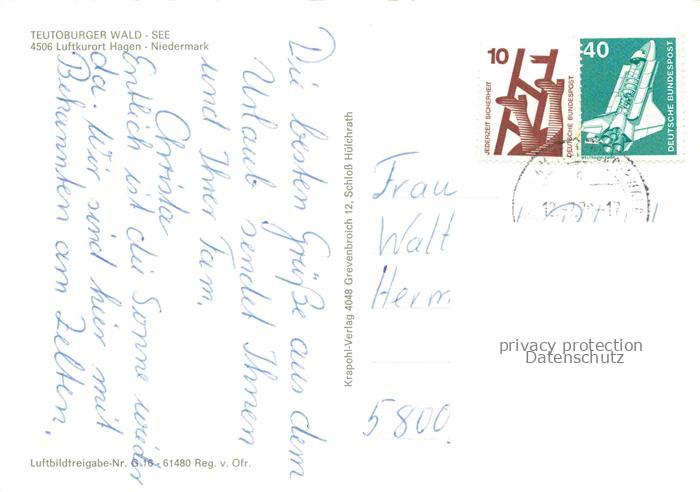 TEUTOBURGER WALD - SEE
4506 Luftkurort Hagen - Niedermark
Die besten Grüße aus dem
Urlaub sendet Ihnen
und Ihrer Fam.
Christa
Endlich ist die Sonne wieder
da. Wir sind hier mit
Bekannten am Zelten.
Luftbildfreigabe-Nr. G 16 - 61480 Reg. v. Ofr.
Krapohl-Verlag 4048 Grevenbroich 12, Schloß Hülchrath
10
JEDERZEIT SICHERHEIT
DEUTSCHE BUNDESPOST
40
DEUTSCHE BUNDESPOST
Frau
Walt
Herm
5800
privacy protection
Datenschutz